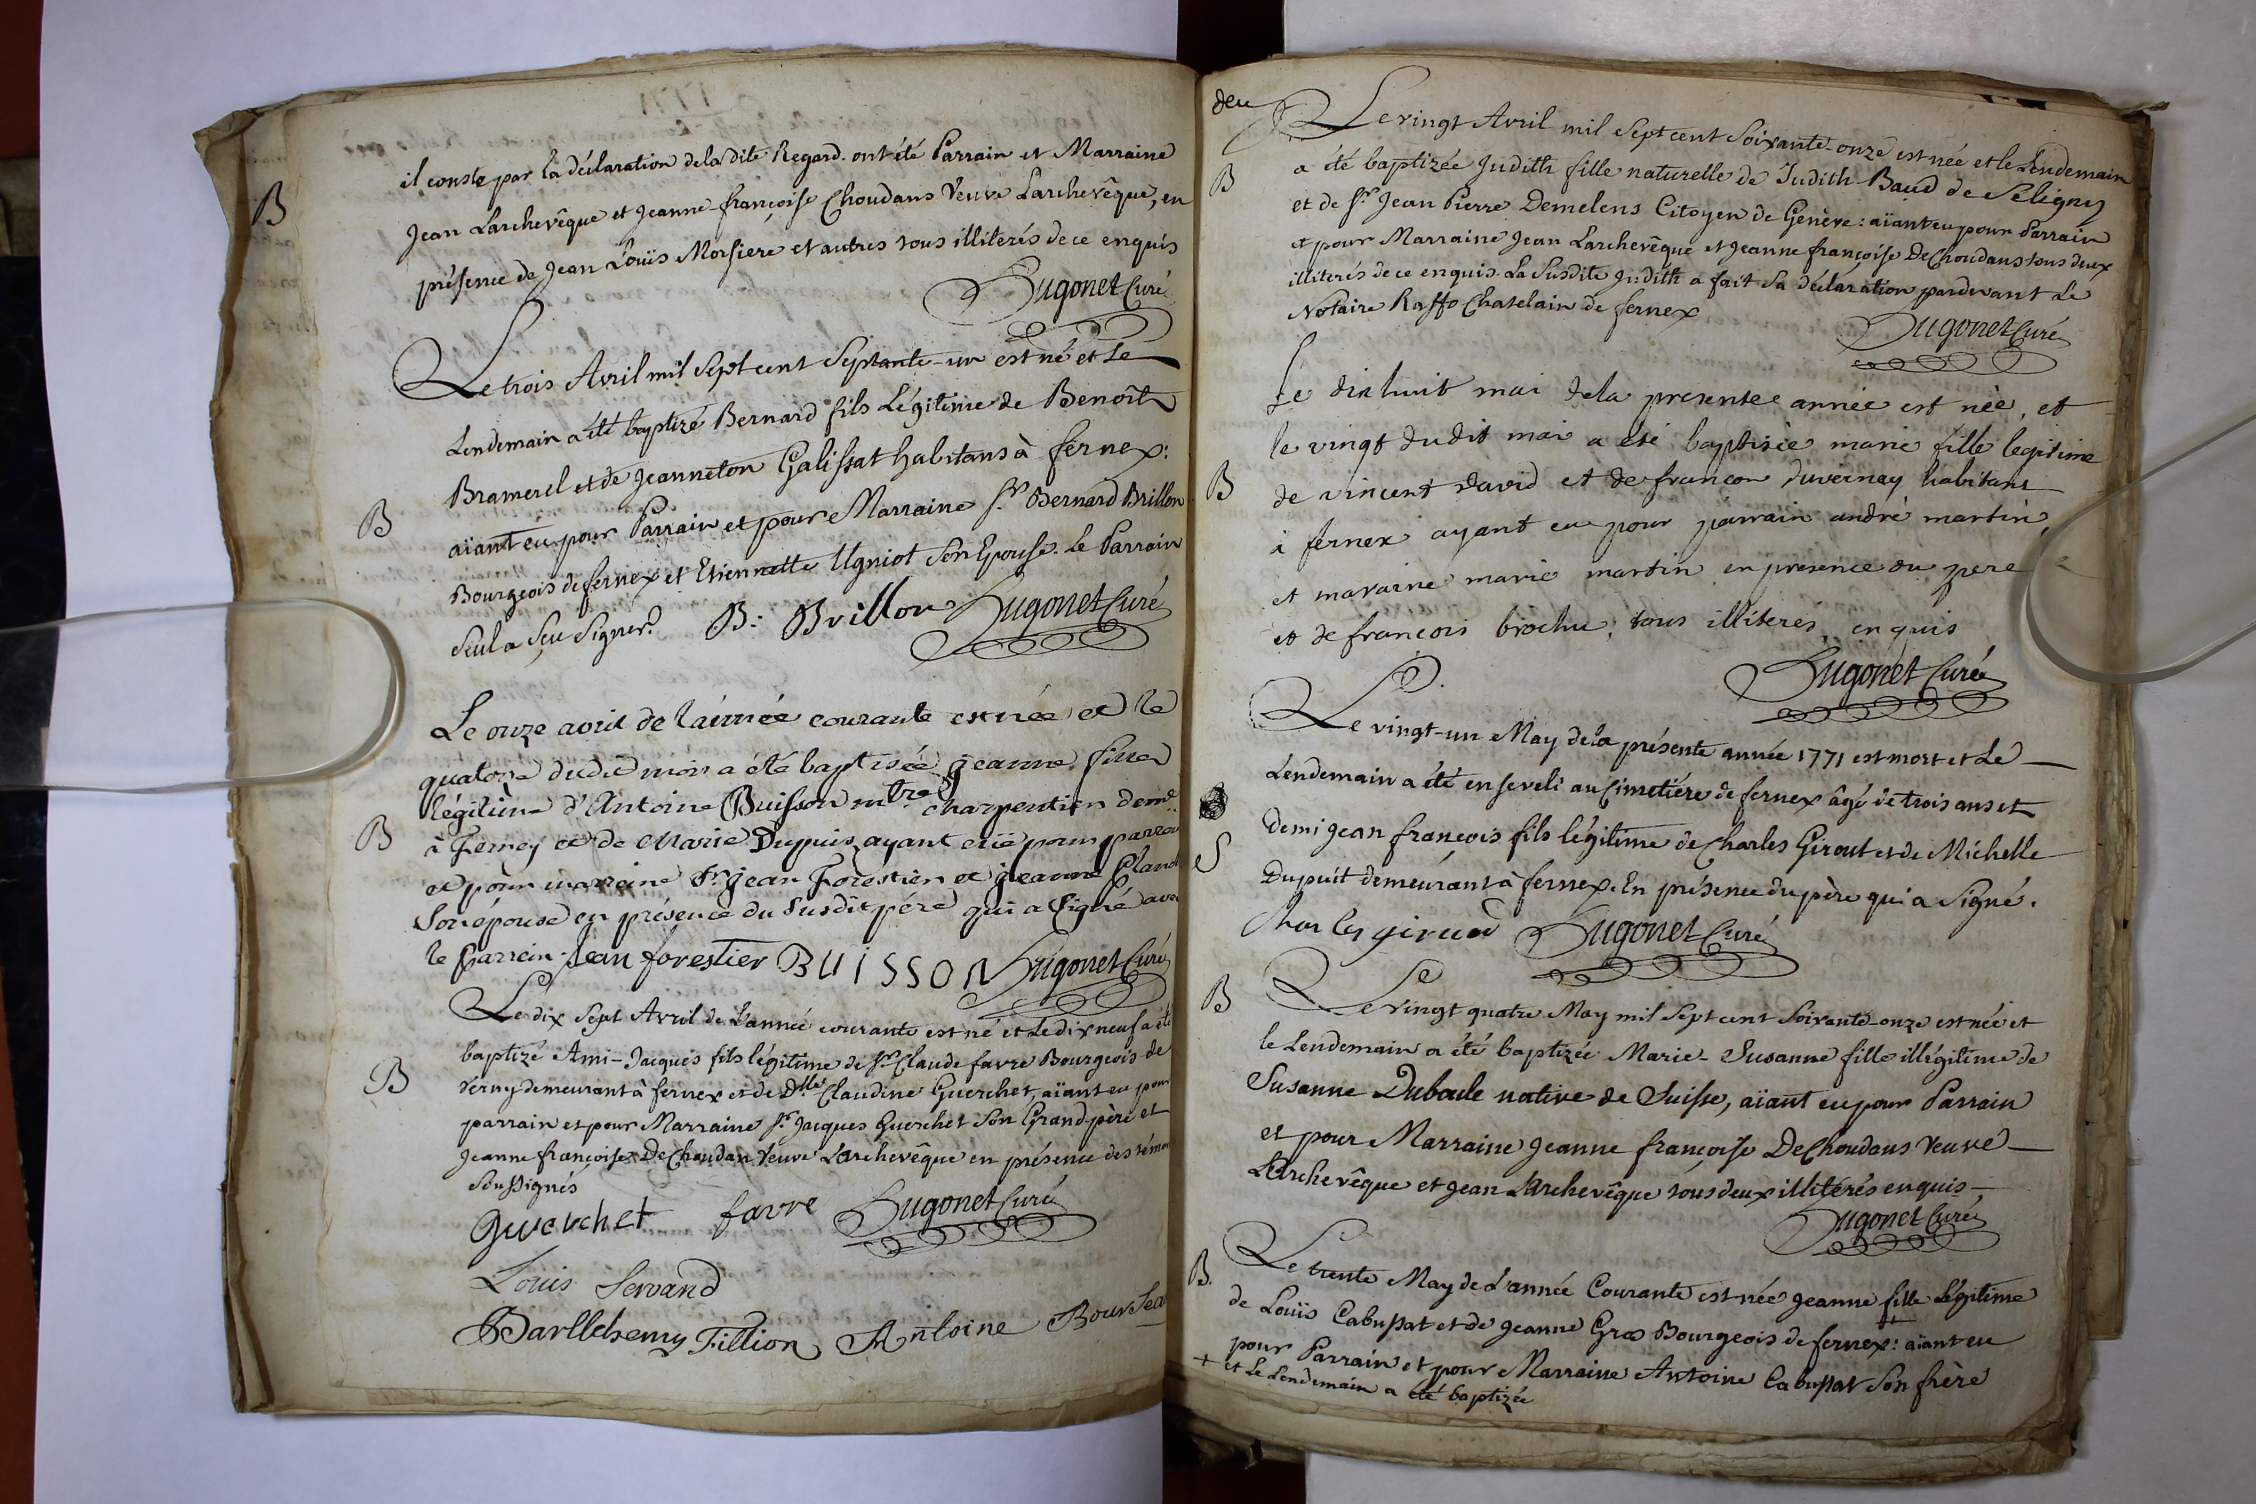 il conste par la déclaration de la dite Regard. ont été Parrain et Marraine
B
Jean Larchevêque et Jeanne-françoise Choudans Veuve Larchevêque, en
présence de Jean Loüis Morsiere et autres tous illiterés de ce enquis
Hugonet Curé
Le trois Avril mil sept cent septante-un est né et Le
Lendemain a été baptizé Bernard fils Légitime de Benoît
Bramerel et de Jeanneton Galissat habitans à fernex:
B
aïant eu pour Parrain et pour Marraine Sr. Bernard Brillon
Bourgeois de fernex et Etiennette Ugniot son Epouse. le Parrain
seul a sçu signer.
B: Brillon Hugonet Curé
Le onze avril de l'année courante est née et le
quatorze dudit mois a été baptisée jeanne fille
légitime d'Antoine Buisson mtre charpentier demt.
B
à Ferney et de Marie Dupuis, ayant eüe pour parrain
et pour marreine Sr. Jean Forestier et jeanne
son épouse en présence du susdit père qui a signé avec
le Parrein. Jean forestier BUISSON Hugonet Curé
Le dix sept Avril de l'année courante est né et Le dix neuf a été
baptizé Ami-Jacques fils légitime de Sr. Claude favre Bourgeois de
B
Verny demeurant à fernex et de Dlle. Claudine Guerchet, aïant eu pour
parrain et pour Marraine Sr. Jacques Guerchet son Grand père et
Jeanne françoise De Choudan Veuve Larchevêque en présence des témoins
soussignés
Guerchet favre Hugonet Curé
Louis Servand
Barllthemy Fillion Antoine Bourseau
deu
Le vingt Avril mil sept cent soixante-onze est née et le Lendemain
B
a été baptizée Judith fille naturelle de Judith Baud de Seligny
et de Sr. Jean Pierre Demelens Citoyen de Genève: aïant eu pour Parrain
et pour Marraine Jean Larchevêque et Jeanne françoise De Choudans tous deux
illiterés de ce enquis. La susdite Judith a fait sa déclaration pardevant Le
Notaire Raffo Chatelain de fernex
Hugonet Curé
Le dixhuit mai de la presente année est née, et
le vingt dudit mai a été baptisée marie fille legitime
B
de vincent david et de françon duvernay habitant
à fernex ayant eu pour parrain andré martin,
et maraine marie martin en presence du pere
et de francois brochu, tous illiteres, enquis
Hugonet Curé
Le vingt-un May de la présente année 1771 est mort et Le
Lendemain a été enseveli au Cimetiére de fernex âgé de trois ans et
demi jean françois fils légitime de Charles Girout et de Michelle
S
Dupuit demeurant à fernex. En présence du père qui a signé.
Charles giroud Hugonet Curé
B
Le vingt quatre May mil sept cent soixante-onze est née et
le Lendemain a été baptizée Marie-Susanne fille illégitime de
Susanne Dubade native de Suisse, aïant eu pour Parrain
et pour Marraine Jeanne françoise De Choudans veuve
Larchevêque et Jean Larchevêque tous deux illiterés enquis,
Hugonet Curé
B.
Le trente May de L'année Courante est née jeanne fille légitime
de Loüis Cabussat et de jeanne Gros Bourgeois de fernex: aïant eu
pour Parrain et pour Marraine Antoine Cabussat son frère
+ et Le Lendemain a été baptizée